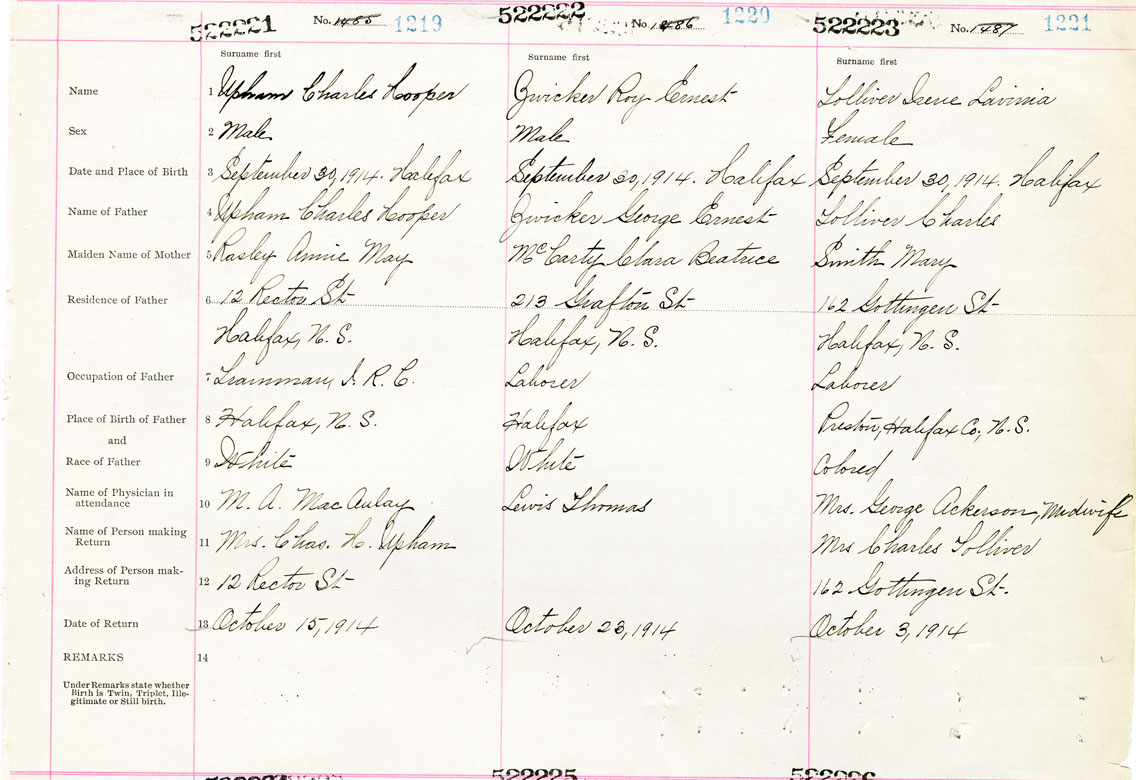 522221 No. 1485 1219 522222 No. 1486 1220 522223 No. 1487 1221
Surname first Surname first Surname first
Name 1 Upham Charles Hooper Zwicker Roy Ernest Tolliver Irene Lavinia
Sex 2 Male Male Female
Date and Place of Birth 3 September 30, 1914. Halifax September 30, 1914. Halifax September 30, 1914. Halifax
Name of Father 4 Upham Charles Hooper Zwicker George Ernest Tolliver Charles
Maiden Name of Mother 5 Rasley Annie May McCarty Clara Beatrice Smith Mary
Residence of Father 6 12 Rector St 213 Grafton St 162 Gottingen St
Halifax, N. S. Halifax, N. S. Halifax, N. S.
Occupation of Father 7 Trainman, I. R. C. Laborer Laborer
Place of Birth of Father 8 Halifax, N. S. Halifax Preston, Halifax Co., N. S.
and
Race of Father 9 White White Colored
Name of Physician in attendance 10 M. A. MacAulay Lewis Thomas Mrs. George Ackerson, Midwife
Name of Person making Return 11 Mrs. Chas. H. Upham Mrs Charles Tolliver
Address of Person mak-
ing Return 12 12 Rector St 162 Gottingen St.
Date of Return 13 October 15, 1914 October 23, 1914 October 3, 1914
REMARKS 14
Under Remarks state whether
Birth is Twin, Triplet, Ille-
gitimate or Still birth.
522225